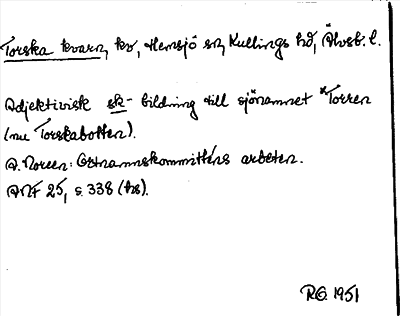 Torska kvarn, kv, Hemsjö sn, Kullings hd, Älvsb. l.
Adjektivisk sk- bildning till sjönamnet *Torren
(nu Torskabotten).
A. Noreen: Ortnamnskommitténs arbeten.
ANF 25, s. 338 (hs).
RG. 1951